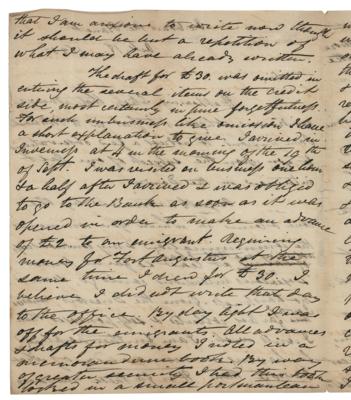 that I am anxious to write now though
it should be but a repetition of
what I may have already written.
The draft for £30. was omitted in
entering the several items on the credit
side most certainly in pure forgetfulness.
For such unbusiness like omission I have
a short explanation to give. I arrived in
Inverness at 4 in the morning of the 19th
of Sept. I was visited on business one hour
& a half after I arrived & was obliged
to go to the Bank as soon as it was
opened in order to make an advance
of £2 to an emigrant. Requiring
money for Fort Augustus at the
same time I drew for £30. I
believe I did not write that day
to the office. By day light I was
off for the emigrants. All advances
& drafts for money I noted in a
memorandum book. By way
of greater security I had this book
locked in a small portmanteau